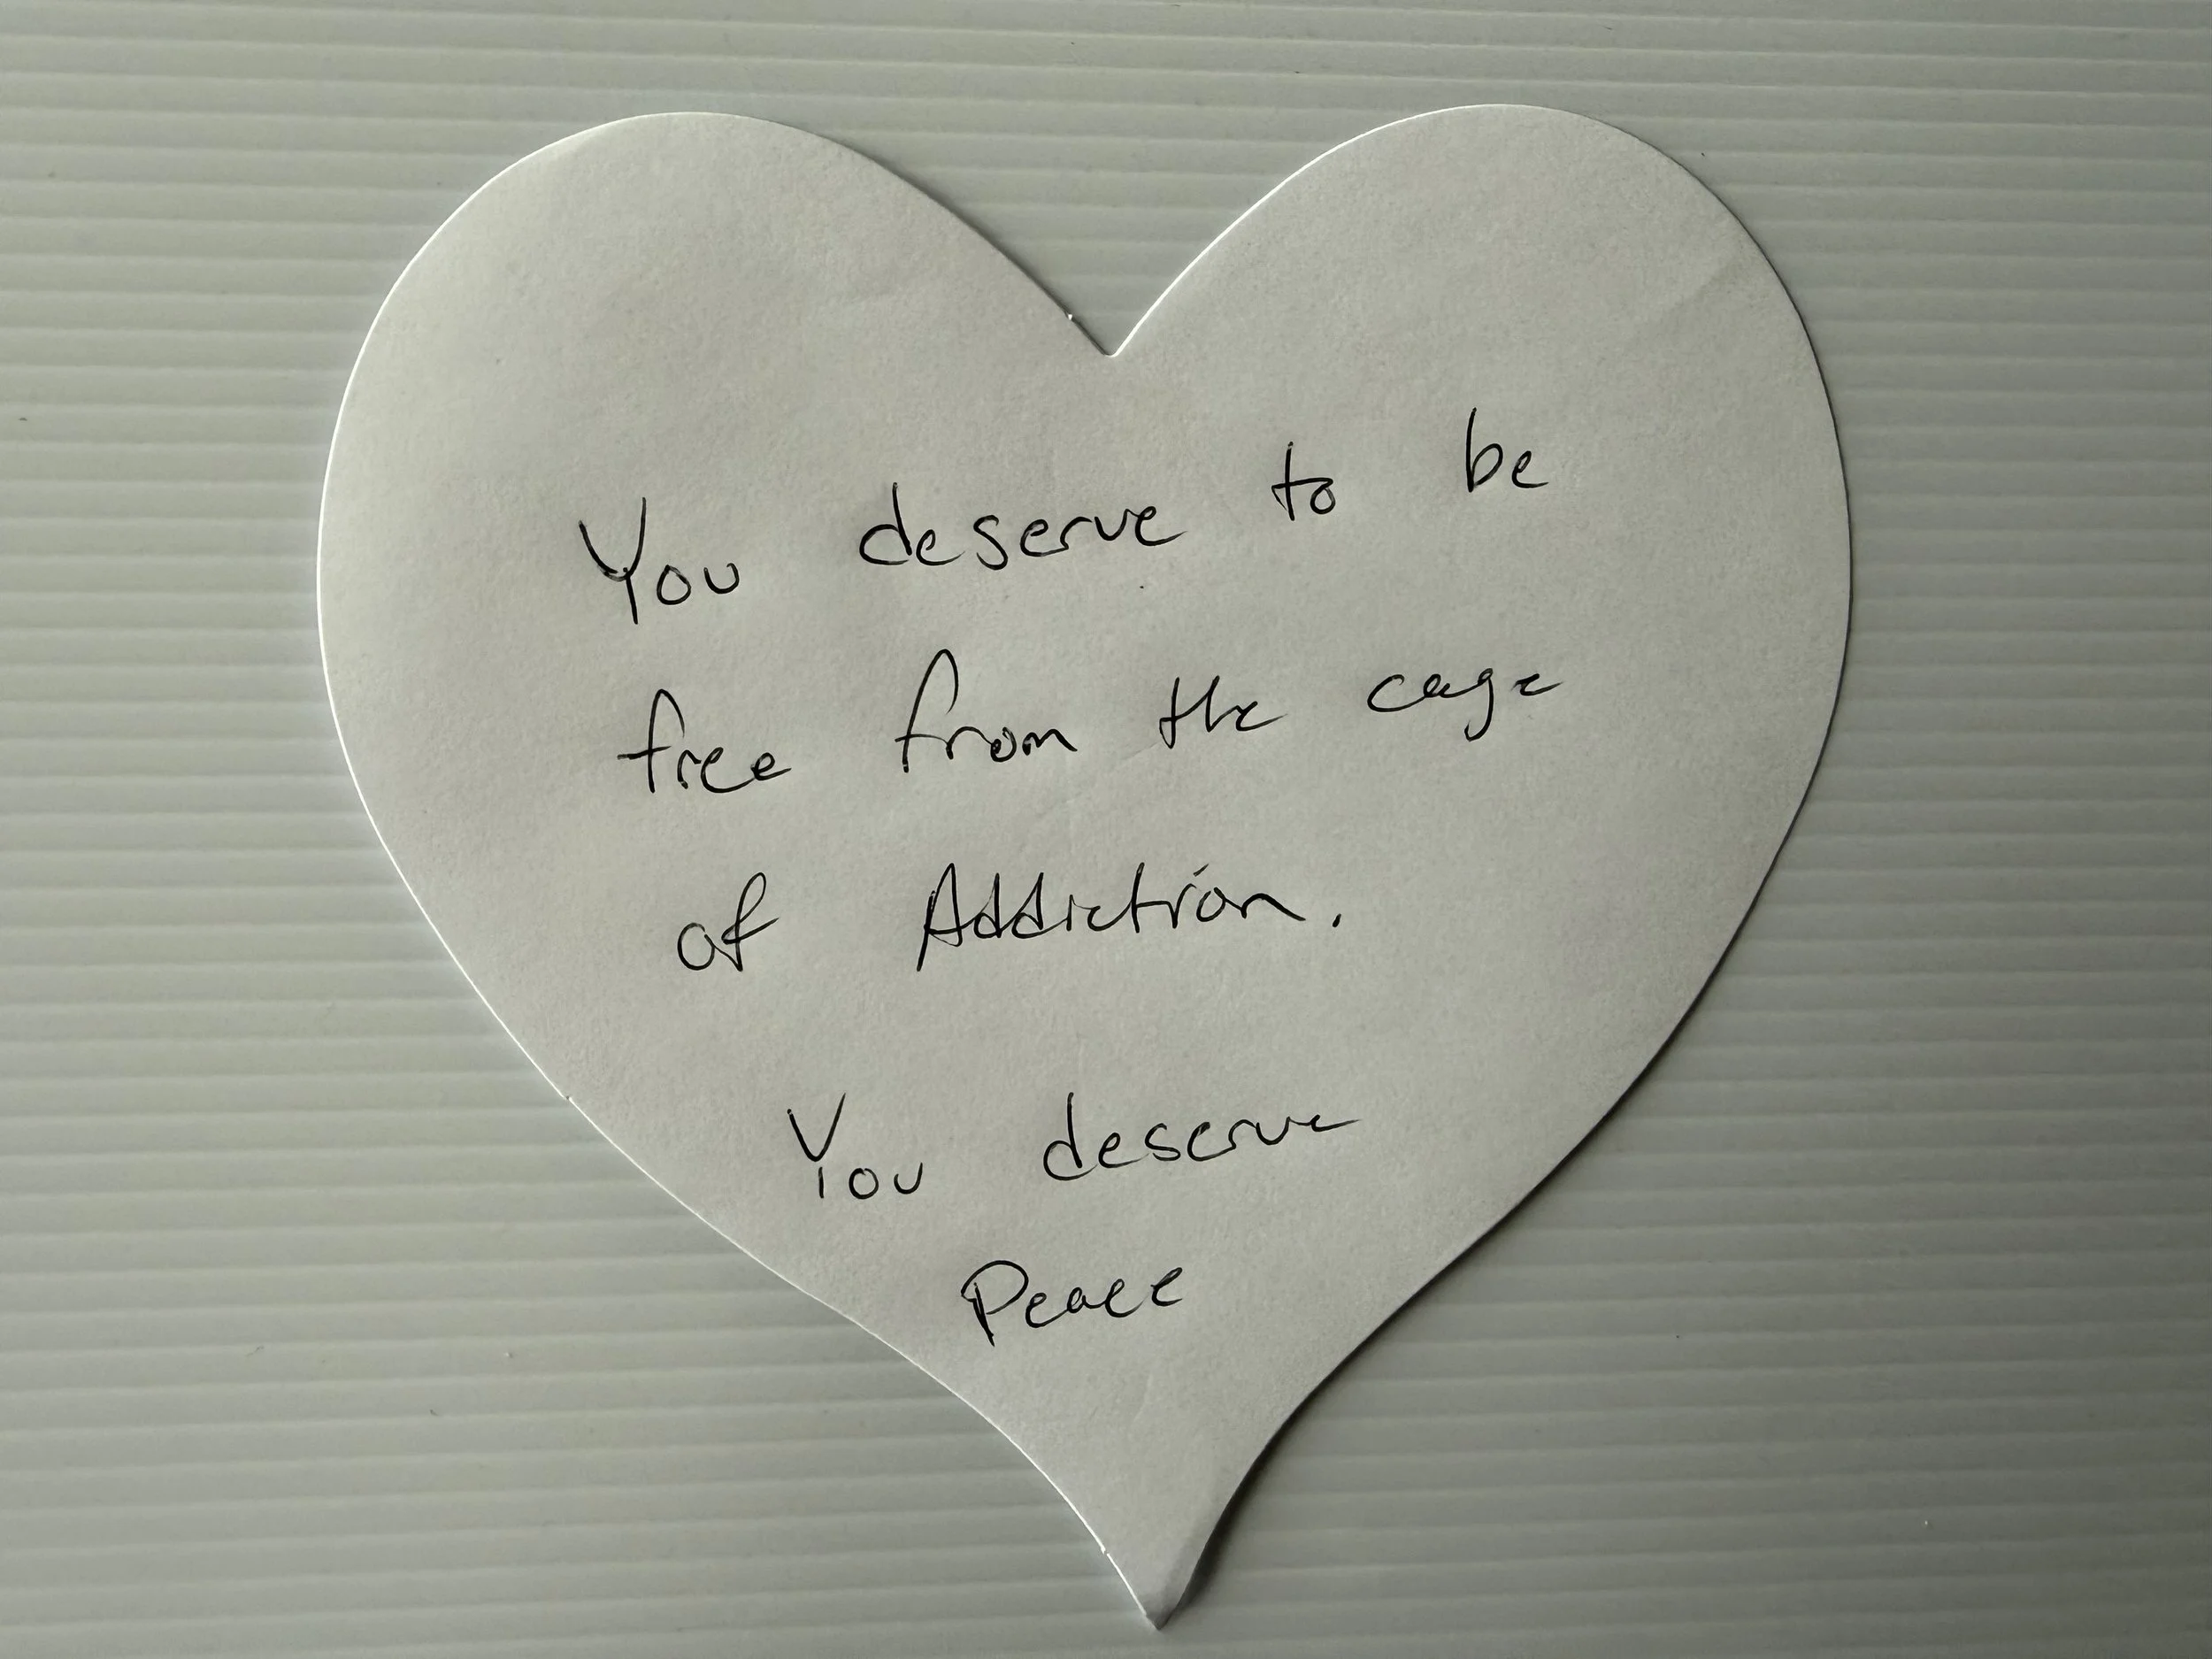 You deserve to be
free from the cage
of Addiction.
You deserve
Peace